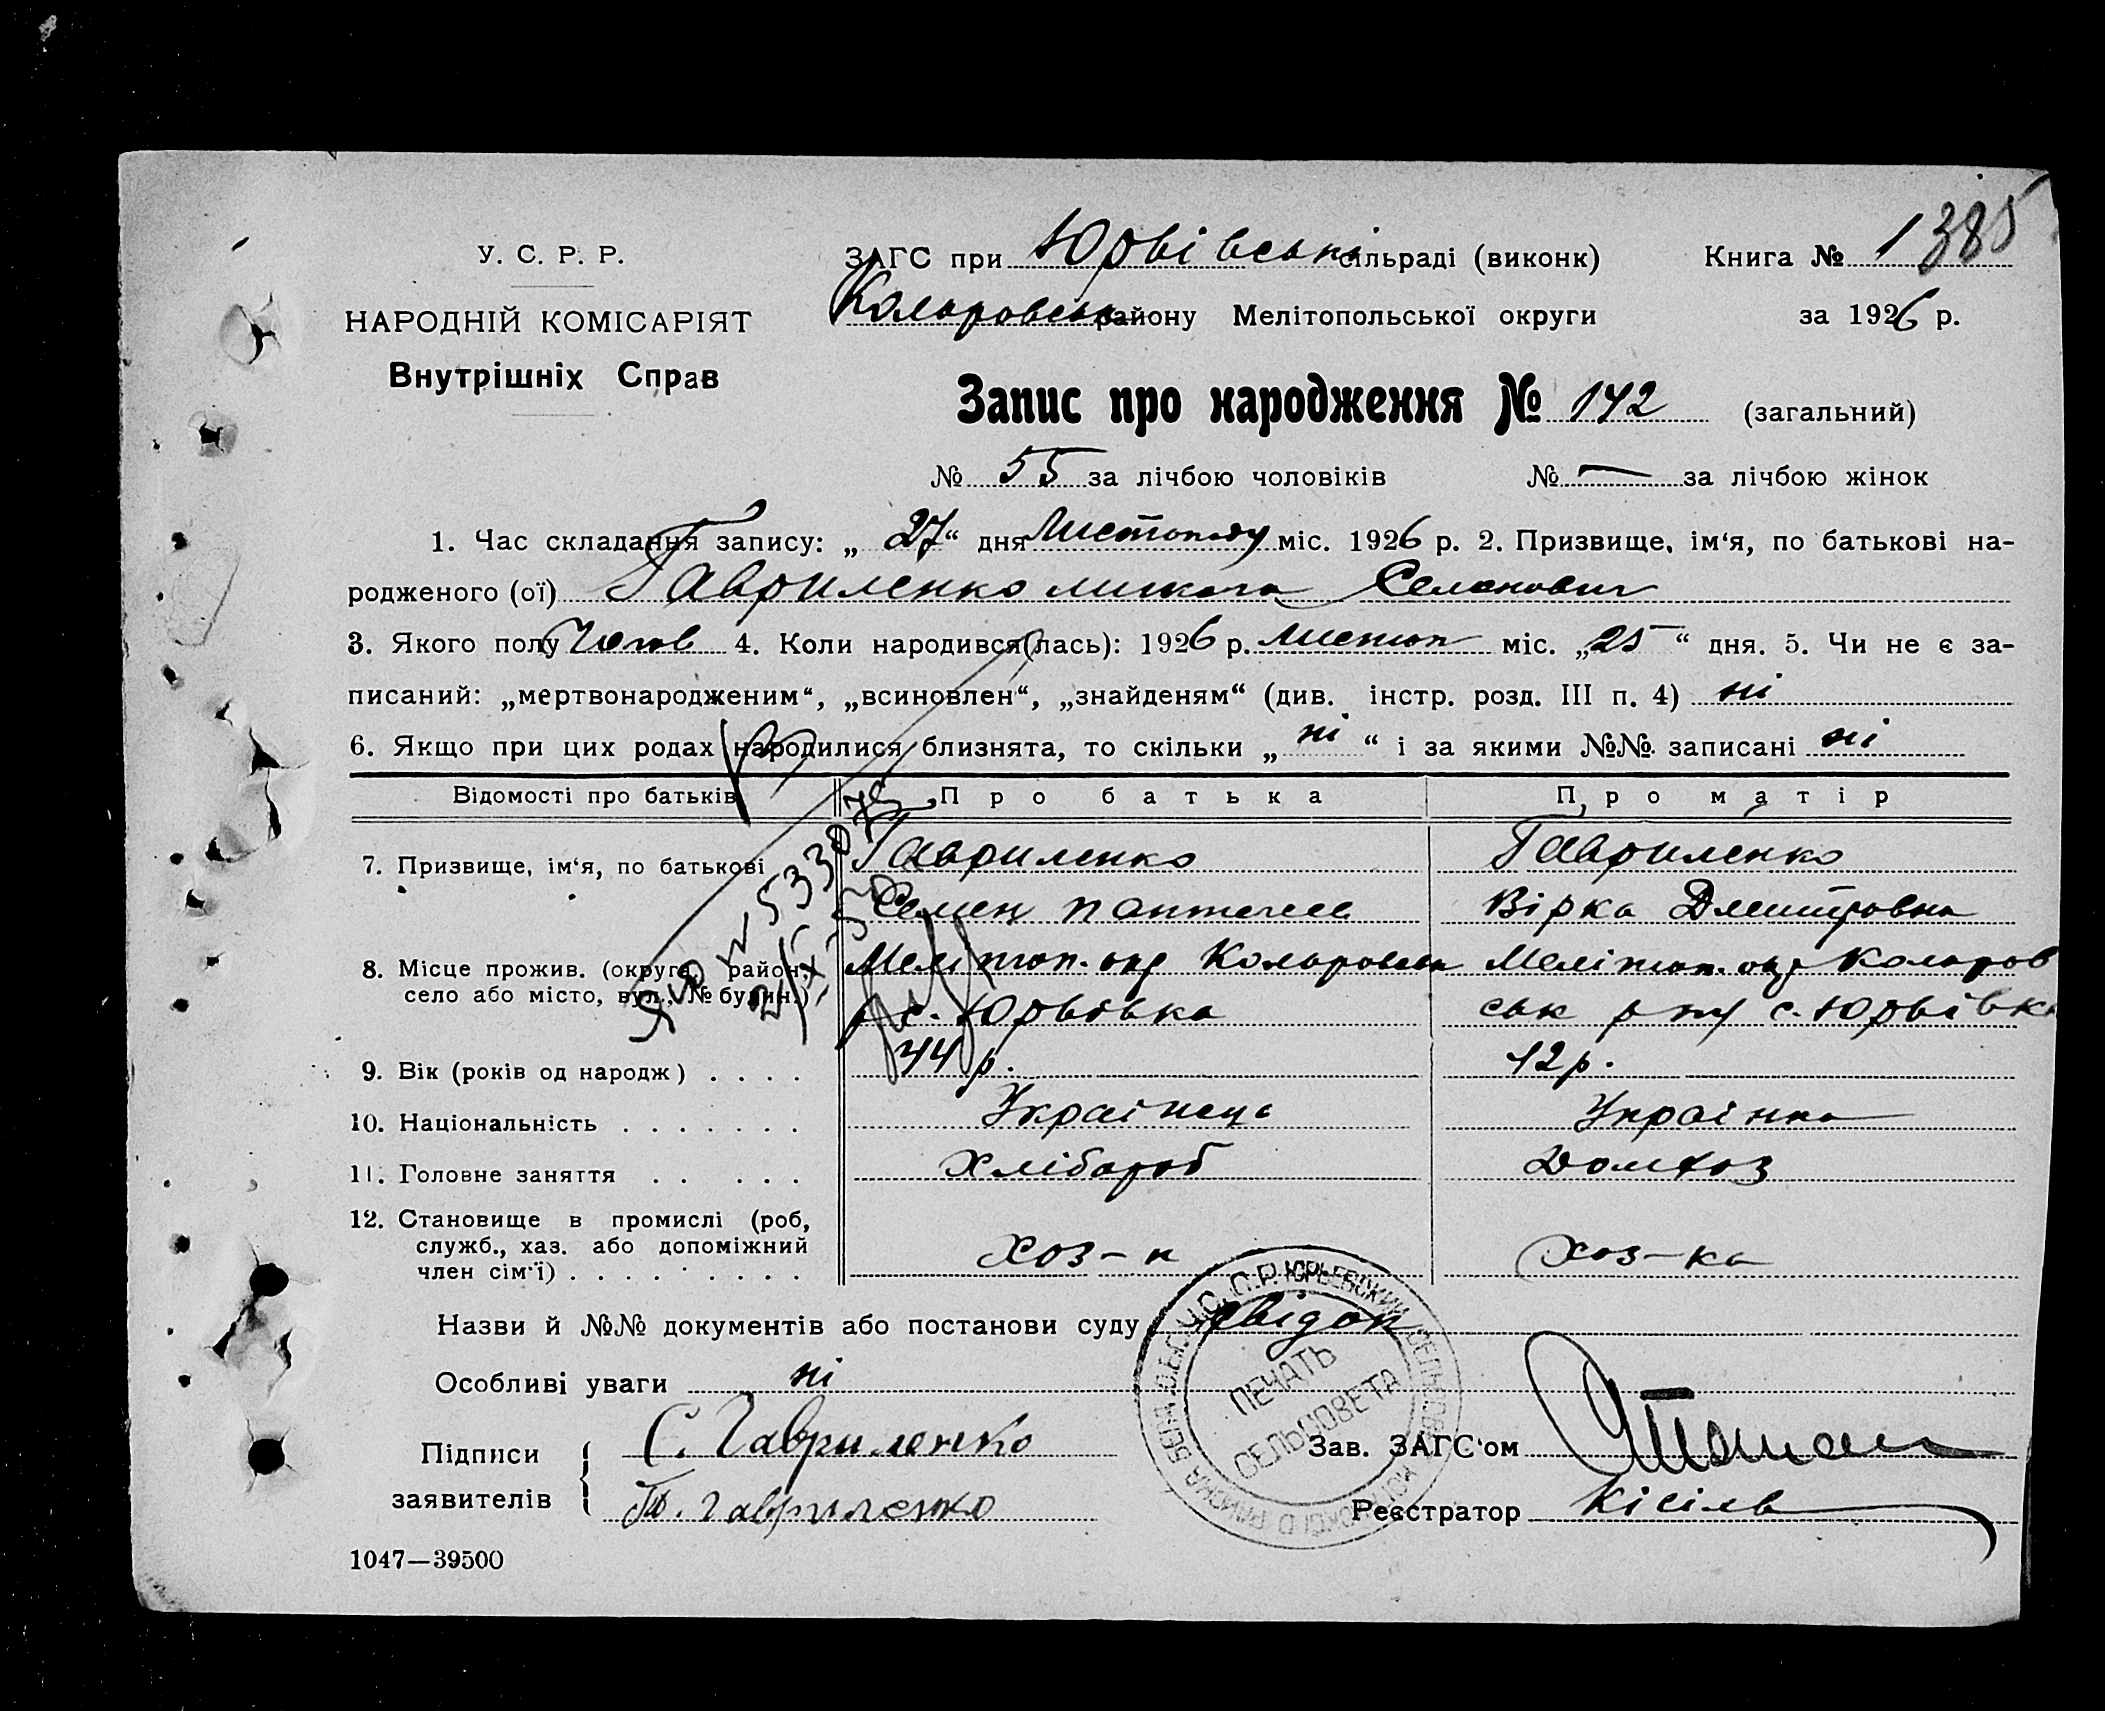 У. С. Р. Р.
НАРОДНІЙ КОМІСАРІЯТ
Внутрішніх Справ
ЗАГС при Юрвівські сільраді (виконк) Книга № 1 385
Коларовськ району Мелітопольської округи за 1926 р.
Запис про народження № 142 (загальний)
№ 55 за лічбою чоловіків № — за лічбою жінок
1. Час складання запису: „ 27 “ дня Листопаду міс. 1926 р. 2. Призвище, ім‘я, по батькові на-
родженого (ої) Гавриленко Семенович
3. Якого полу Чолов 4. Коли народився(лась): 1926 р. Листоп міс. „ 25 “ дня. 5. Чи не є за-
писаний: „мертвонародженим“, „всиновлен“, „знайденям“ (див. інстр. розд. III п. 4) ні
6. Якщо при цих родах народилися близнята, то скільки „ ні “ і за якими №№ записані ні
Відомості про батьків Про батька Про матір
7. Призвище, ім‘я, по батькові Гавриленко Гавриленко
Семен Вірка Дмитровна
8. Місце прожив. (округа, район, Меліноп. окр Коларовськ Меліноп. окр Коларов
село або місто, вул., № будин.) с. Юрвівка ськ р с. Юрвівка
9. Вік (років од народж) . . . . 44 р. 42 р.
10. Національність . . . . . . . Украінець Украінка
11. Головне заняття . . . . . Хлібороб Домхоз
12. Становище в промислі (роб,
служб., хаз. або допоміжний
член сім‘ї) . . . . . . . . . Хоз-н Хоз-ка
Назви й №№ документів або постанови суду свідоц
Особливі уваги ні
ПЕЧАТЬ СЕЛЬСОВЕТА
Підписи С. Гавриленко Зав. ЗАГС‘ом
заявителів Гавриленко Реєстратор Кісіль
1047—39500